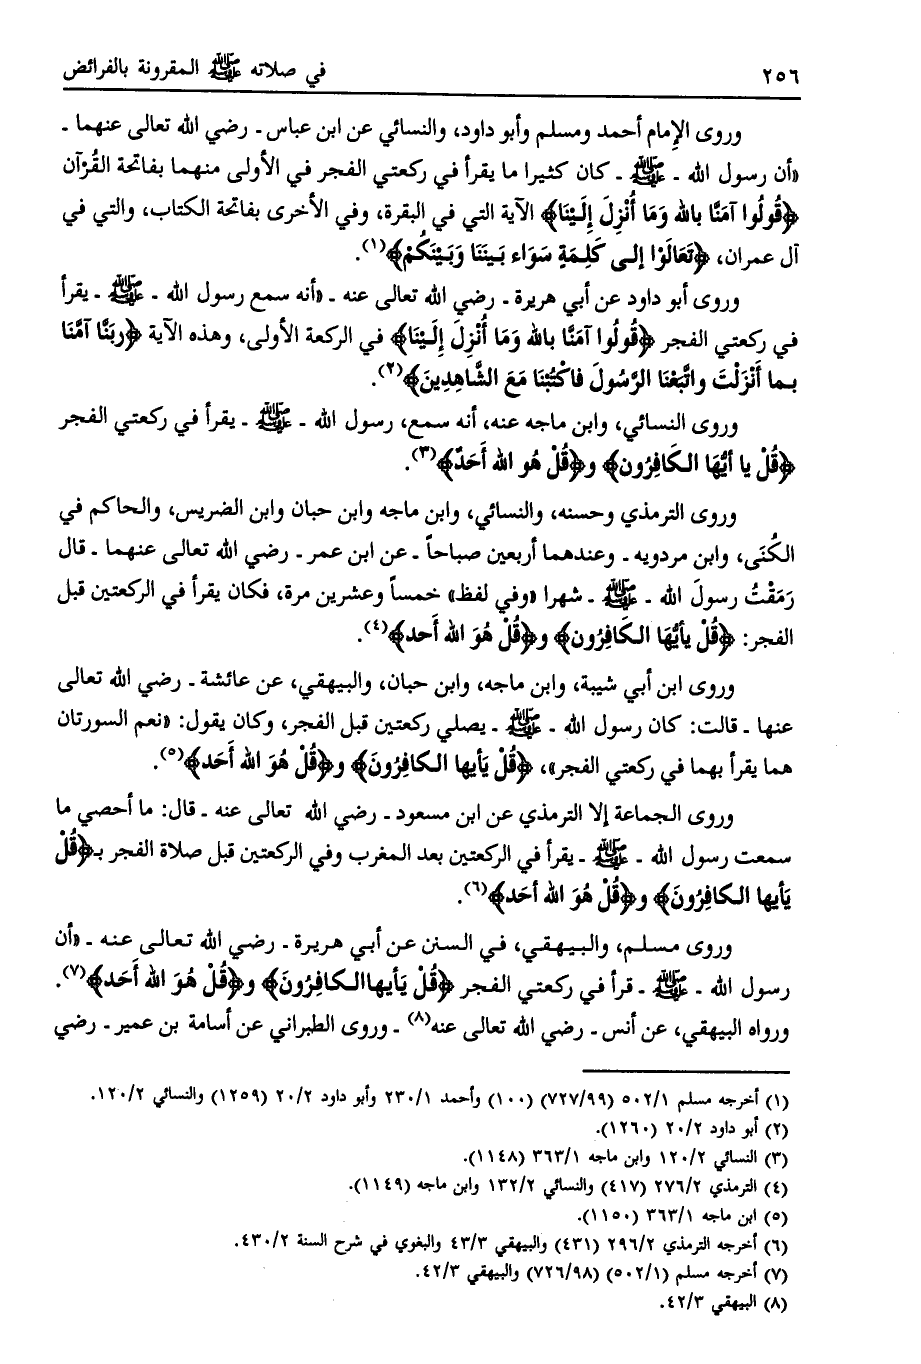 ٢٥٦ في صلاته ﷺ المقرونة بالفرائض
وروى الإمام أحمد ومسلم وأبو داود، والنسائي عن ابن عباس ـ رضي الله تعالى عنهما ـ
«أن رسول الله ـ ﷺ ـ كان كثيرا ما يقرأ في ركعتي الفجر في الأولى منهما بفاتحة القُرْآن
﴿قُولُوا آمَنَّا بالله وَمَا أُنْزِلَ إِلَيْنَا﴾ الآية التي في البقرة، وفي الأخرى بفاتحة الكتاب، والتي في
آل عمران، ﴿تَعَالَوْا إلى كَلِمَةٍ سَوَاء بَينَنَا وَبَيْنَكُمْ﴾(١).
وروى أبو داود عن أبي هريرة ـ رضي الله تعالى عنه ـ «أنه سمع رسول الله ـ ﷺ ـ يقرأ
في ركعتي الفجر ﴿قُولُوا آمَنَّا بالله وَمَا أُنْزِلَ إِلَيْنَا﴾ في الركعة الأولى، وهذه الآية ﴿ربَنَّا آمَّنَا
بـما أَنْزَلْتَ واتَّبَعْنَا الرَّسُولَ فاكْتُبْنَا مَعَ الشَّاهِدِينَ﴾(٢).
وروى النسائي، وابن ماجه عنه، أنه سمع، رسول الله ـ ﷺ ـ يقرأ في ركعتي الفجر
﴿قُلْ يا أيُّهَا الكَافِرُون﴾ و﴿قُلْ هُو الله أَحَدٌ﴾(٣).
وروى الترمذي وحسنه، والنسائي، وابن ماجه وابن حبان وابن الضريس، والحاكم في
الكُنَى، وابن مردويه ـ وعندهما أربعين صباحاً ـ عن ابن عمر ـ رضي الله تعالى عنهما ـ قال
رَمَقْتُ رسولَ الله ـ ﷺ ـ شهرا «وفي لفظ» خمساً وعشرين مرة، فكان يقرأ في الركعتين قبل
الفجر: ﴿قُلْ يأيُّهَا الكَافِرُون﴾ و﴿قُلْ هُوَ الله أَحد﴾(٤).
وروى ابن أبي شيبة، وابن ماجه، وابن حبان، والبيهقي، عن عائشة ـ رضي الله تعالى
عنها ـ قالت: كان رسول الله ـ ﷺ ـ يصلي ركعتين قبل الفجر، وكان يقول: «نعم السورتان
هما يقرأ بهما في ركعتي الفجر»، ﴿قُلْ يَأيها الكافِرُونَ﴾ و﴿قُلْ هُوَ الله أَحَد﴾(٥).
وروى الجماعة إلا الترمذي عن ابن مسعود ـ رضي الله تعالى عنه ـ قال: ما أحصي ما
سمعت رسول الله ـ ﷺ ـ يقرأ في الركعتين بعد المغرب وفي الركعتين قبل صلاة الفجر بـ﴿قُلْ
يَأيها الكافِرُونَ﴾ و﴿قُلْ هُوَ الله أحَد﴾(٦).
وروى مسلم، والبيهقي، في السنن عن أبي هريرة ـ رضي الله تعالى عنه ـ «أن
رسول الله ـ ﷺ ـ قرأ في ركعتي الفجر ﴿قُلْ يَأيهاالكافِرُونَ﴾ و﴿قُلْ هُوَ الله أَحَد﴾(٧).
ورواه البيهقي، عن أنس ـ رضي الله تعالى عنه(٨) ـ وروى الطبراني عن أسامة بن عمير ـ رضي
(١) أخرجه مسلم ٥٠٢/١ (٧٢٧/٩٩) (١٠٠) وأحمد ٢٣٠/١ وأبو داود ٢٠/٢ (١٢٥٩) والنسائي ١٢٠/٢.
(٢) أبو داود ٢٠/٢ (١٢٦٠).
(٣) النسائي ١٢٠/٢ وابن ماجه ٣٦٣/١ (١١٤٨).
(٤) الترمذي ٢٧٦/٢ (٤١٧) والنسائي ١٣٢/٢ وابن ماجه (١١٤٩).
(٥) ابن ماجه ٣٦٣/١ (١١٥٠).
(٦) أخرجه الترمذي ٢٩٦/٢ (٤٣١) والبيهقي ٤٣/٣ والبغوي في شرح السنة ٤٣٠/٢.
(٧) أخرجه مسلم (٥٠٢/١) (٧٢٦/٩٨) والبيهقي ٤٢/٣.
(٨) البيهقي ٤٢/٣.